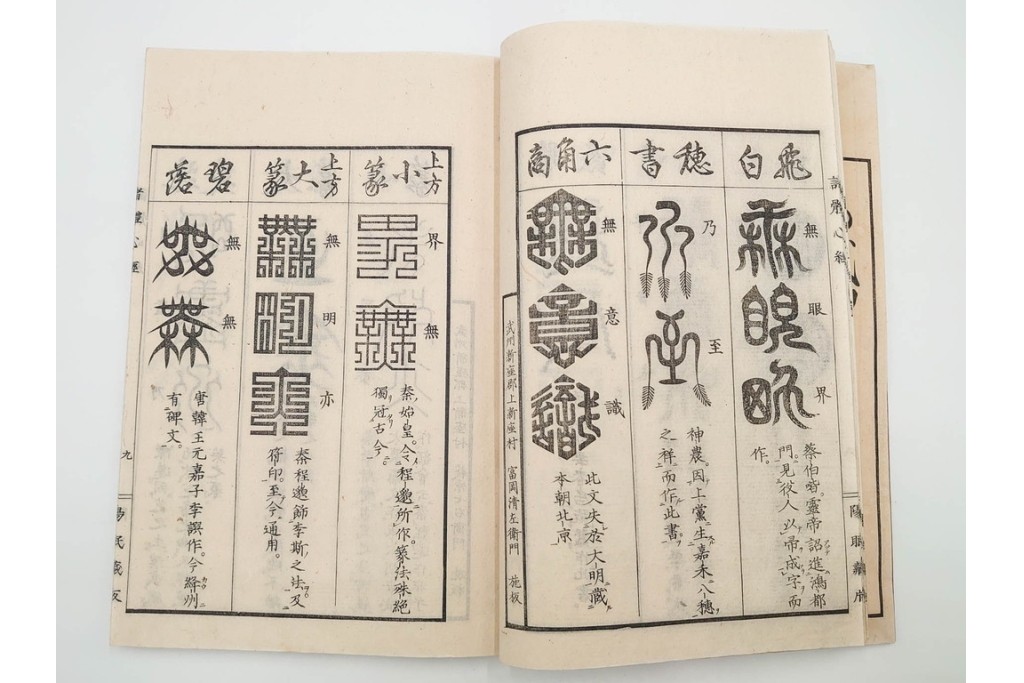 飛白
無
眼
界
蔡伯喈靈帝詔進鴻都
門見役人以帚成字而
作。
穂書
乃
至
神農因上黨生嘉禾八穗
之祥而作此書
六角商
無
意
識
此文失於大明蔵
本朝北京
武州新座郡上新座村 富岡清左衛門 施板
上方小篆
界
無
秦始皇令程邈所作。篆法殊絕
獨冠古今。
上方大篆
無
明
亦
秦程邈飾李斯之法及
符印。至今通用。
碧落
無
無
唐韓王元嘉子李譔作。今絳州
有碑文。
九